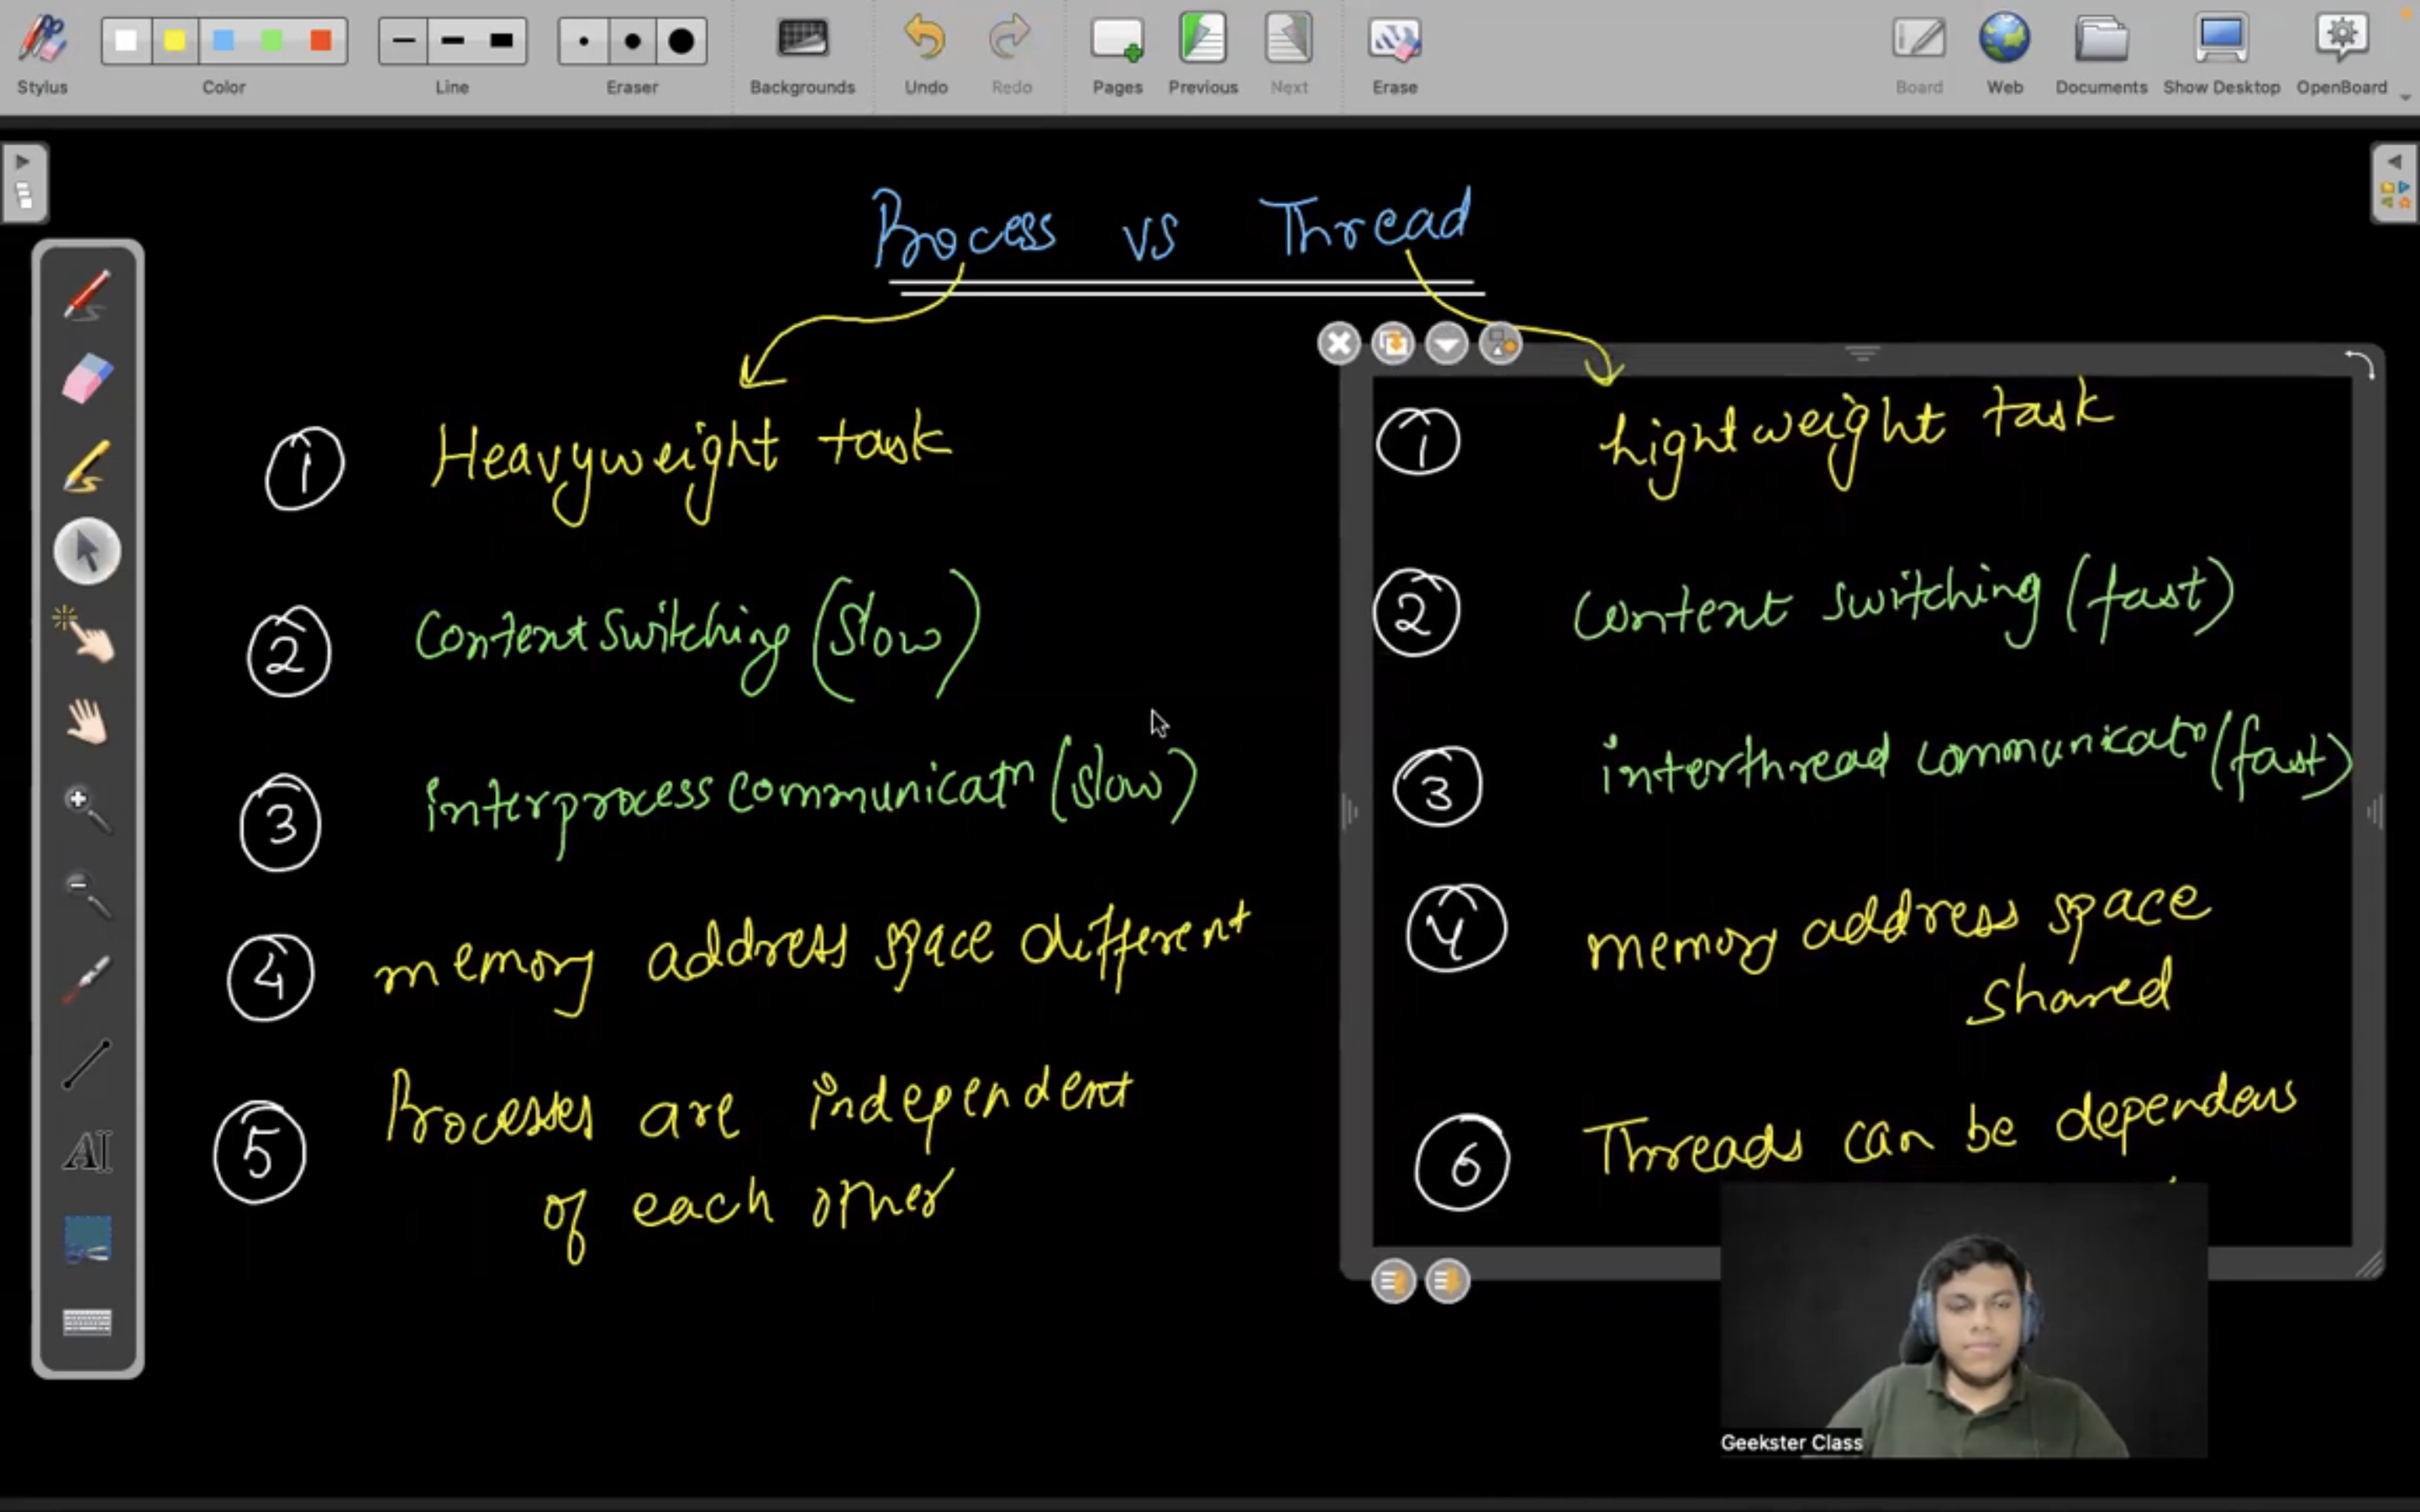 Stylus
Color
Line
Eraser
Backgrounds
Undo
Redo
Pages
Previous
Next
Erase
Board
Web
Documents
Show Desktop
OpenBoard
Process vs Thread
1 Heavyweight task
2 Context switching (slow)
3 interprocess communicatn (slow)
4 memory address space different
5 Processes are independent
of each other
1 Lightweight task
2 Context switching (fast)
3 interthread communicatn (fast)
4 memory address space
shared
6 Threads can be
AI
Geekster Class